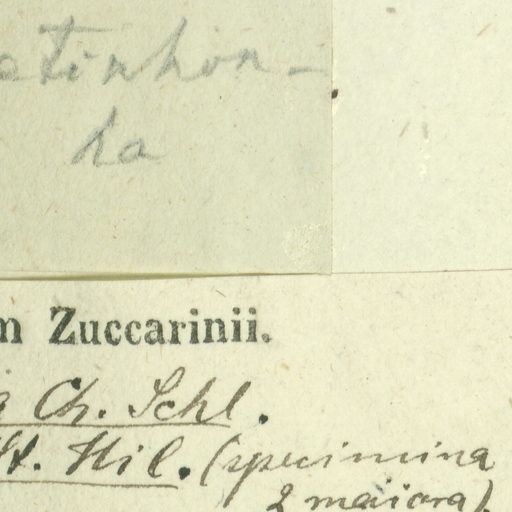 etinhon-
ha
m Zuccarinii.
a Ch. Schl.
St. Hil. (specimina
2 maiora).